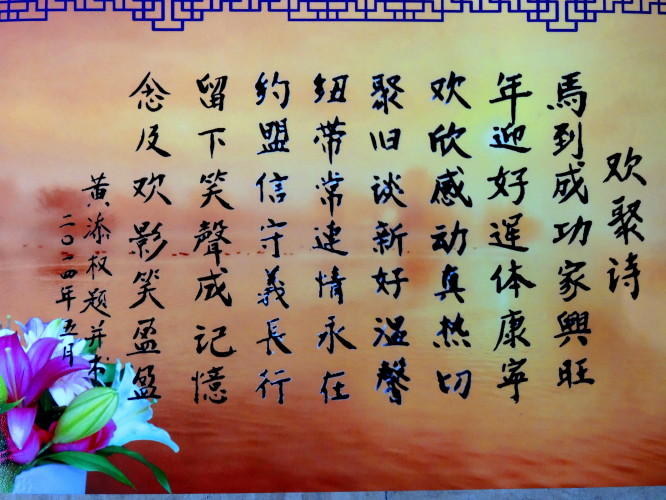 欢聚诗
馬到成功家興旺
年迎好運体康寧
欢欣感动真热切
聚旧谈新好温馨
纽带常连情永在
约盟信守義長行
留下笑聲成记憶
念及欢影笑盈盈
黄添权题并书
二〇一四年五月